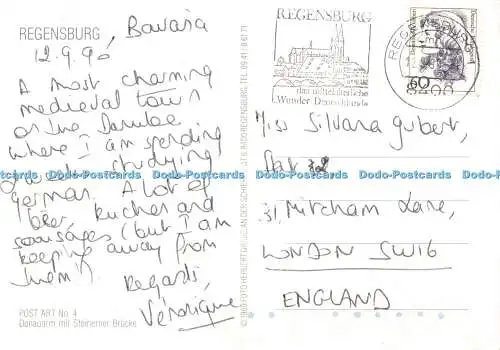 REGENSBURG, Bavaria
12.9.90
A most charming
medieval town
on the Danube
where I am spending
2 weeks studying
German. A lot of
beer, kuchen and
sausages (but I am
keeping away from
them).
Regards,
Véronique
POST ART No. 4
Donauarm mit Steinerner Brücke
REGENSBURG
das mittelalterliche
Wunder Deutschlands
REGENSBURG
60
Miss Silvana Gubert,
Flat
31, Mitcham Lane,
LONDON SW16
ENGLAND
Dodo-Postcards Dodo-Postcards Dodo-Postcards Dodo-Postcards Dodo-Postcards Dodo-Postcards